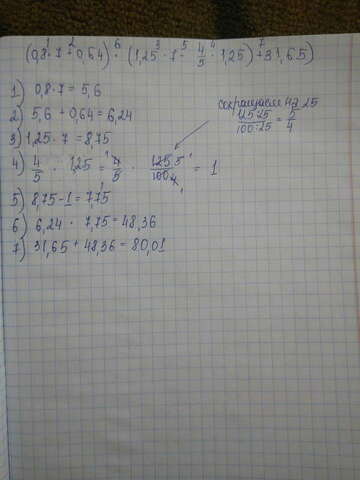 (0,8 · 7 + 0,64) · (1,25 · 7 - 4/5 · 1,25) + 31,65)
1) 0,8 · 7 = 5,6
2) 5,6 + 0,64 = 6,24
3) 1,25 · 7 = 8,75
сокращаем на 25
125:25/100:25 = 5/4
4) 4/5 · 1,25 = 4/5 · 125 5/100 4 = 1
5) 8,75 - 1 = 7,75
6) 6,24 · 7,75 = 48,36
7) 31,65 + 48,36 = 80,01